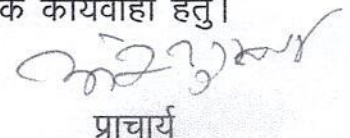 क कार्यवाही हेतु।
प्राचार्य